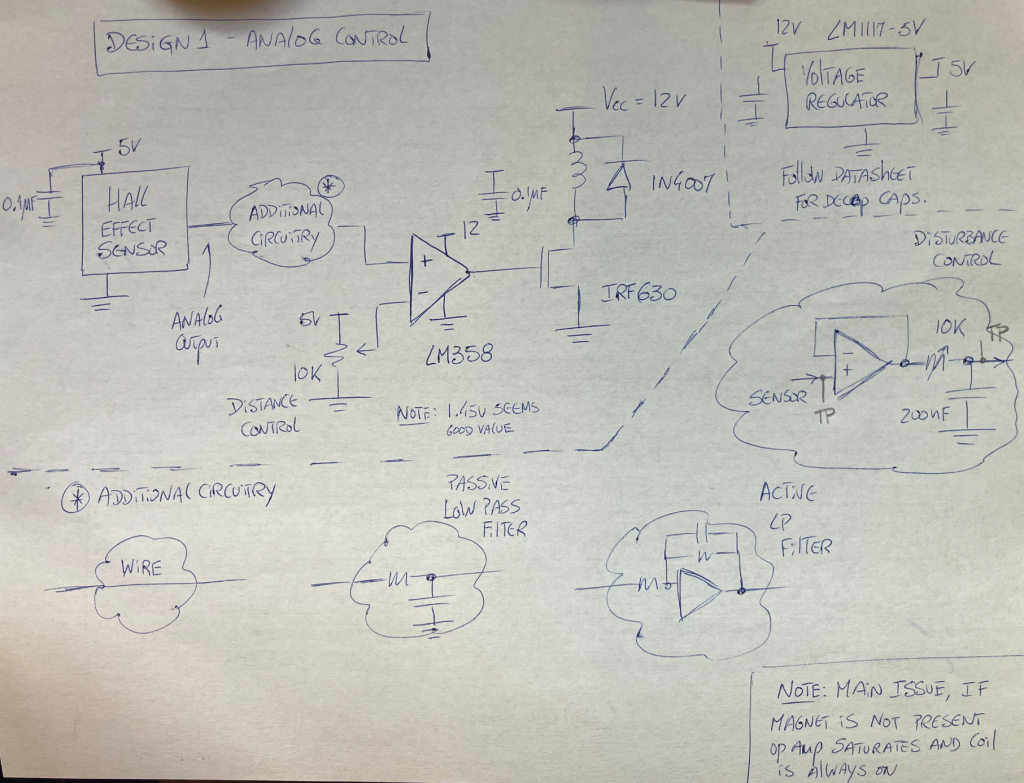 DESIGN 1 - ANALOG CONTROL
12V
LM1117-5V
VOLTAGE
REGULATOR
5V
FOLLOW DATASHEET
FOR DECOP CAPS.
5V
0.1µF
HALL
EFFECT
SENSOR
ANALOG
OUTPUT
*
ADDITIONAL
CIRCUITRY
5V
10K
DISTANCE
CONTROL
+
-
12
LM358
NOTE: 1.45V SEEMS
GOOD VALUE
0.1µF
Vcc = 12V
1N4007
IRF630
DISTURBANCE
CONTROL
SENSOR
TP
-
+
10K
TP
200nF
* ADDITIONAL CIRCUITRY
WIRE
PASSIVE
LOW PASS
FILTER
ACTIVE
LP
FILTER
NOTE: MAIN ISSUE, IF
MAGNET IS NOT PRESENT
OP AMP SATURATES AND COIL
IS ALWAYS ON